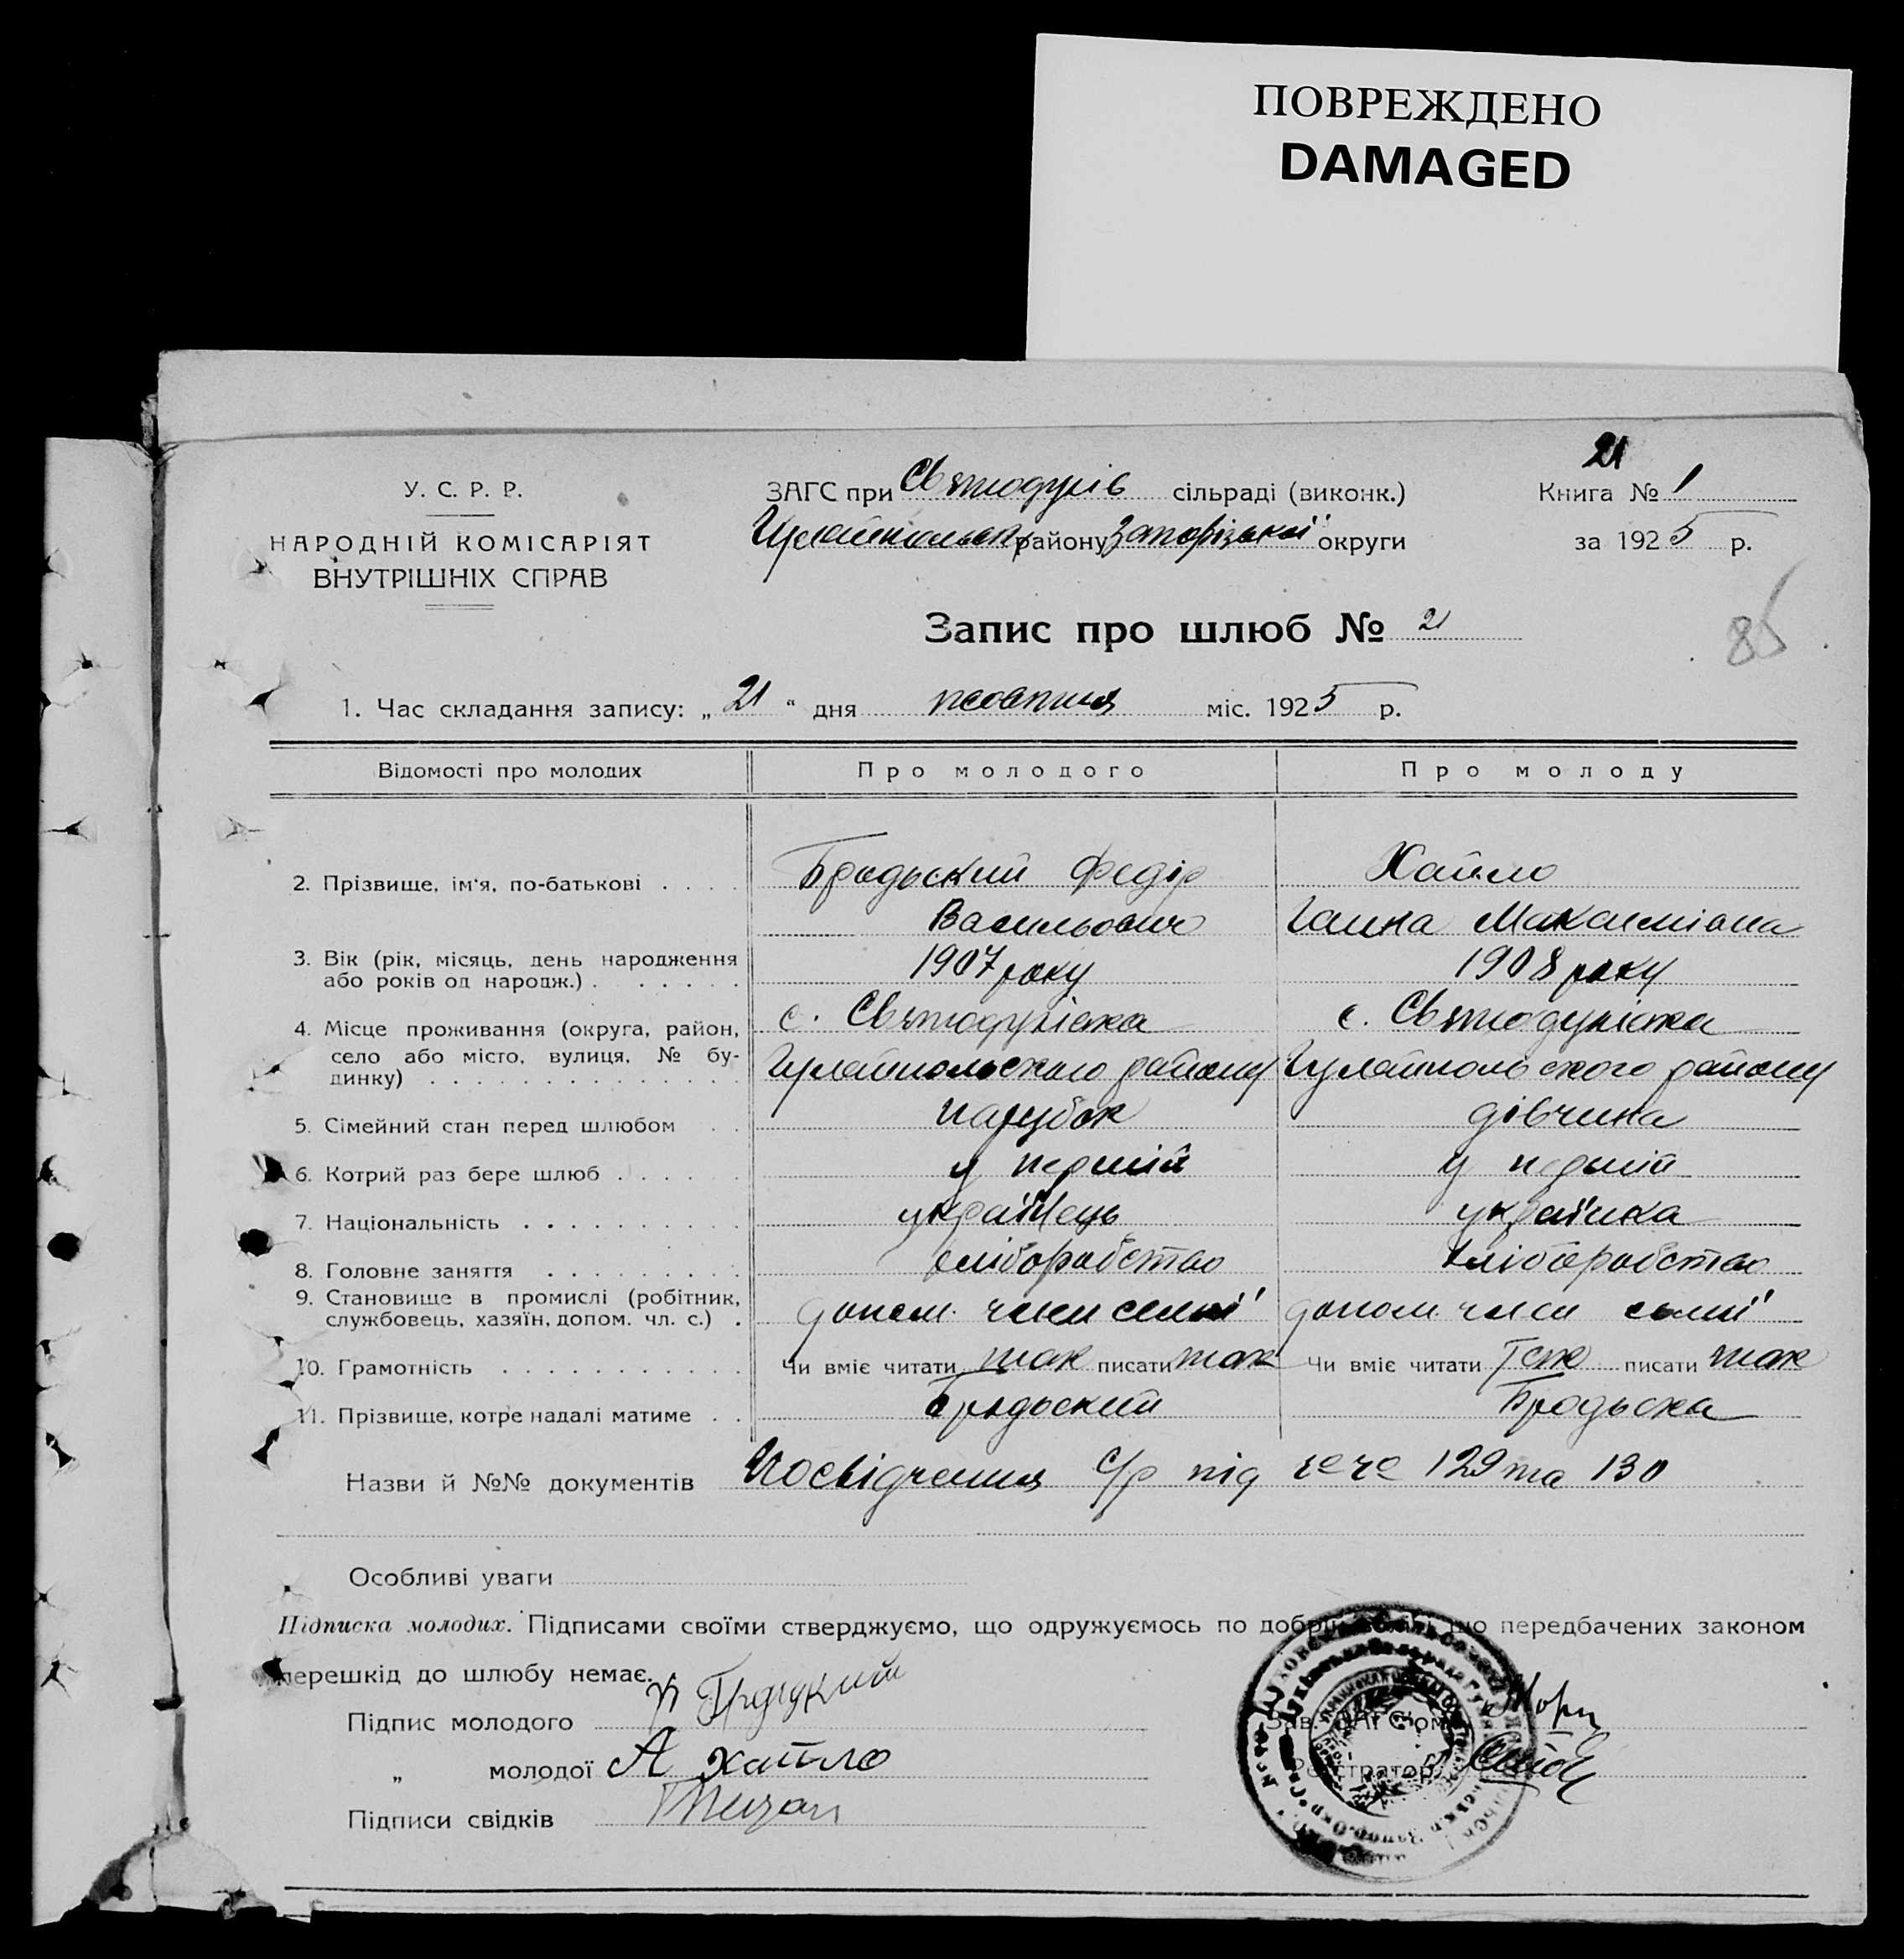 ПОВРЕЖДЕНО
DAMAGED
21
У. С. Р. Р.
НАРОДНІЙ КОМІСАРІЯТ
ВНУТРІШНІХ СПРАВ
ЗАГС при Святодухів сільраді (виконк.)
Гуляйпольськ району Запорізької округи
Книга № 1
за 1925 р.
Запис про шлюб № 21
85
1. Час складання запису: „ 21 “ дня жовтня міс. 1925 р.
Відомості про молодих Про молодого Про молоду
2. Прізвище, ім'я, по-батькові . . . . Бродьский Федір Хайло
Васильович Ганна Максимівна
3. Вік (рік, місяць, день народження
або років од народж.) . . . . . . 1907 року 1908 року
4. Місце проживання (округа, район, с. Святодухівка с. Святодухівка
село або місто, вулиця, № бу-
динку) . . . . . . . . . . . . . . Гуляйпольского району Гуляйпольского району
5. Сімейний стан перед шлюбом . . парубок дівчина
6. Котрий раз бере шлюб . . . . . . у перший у перший
7. Національність . . . . . . . . . . українець українка
8. Головне заняття . . . . . . . . . хліборобство хліборобство
9. Становище в промислі (робітник,
службовець, хазяїн, допом. чл. с.) . допом. член семьї допом член семьї
10. Грамотність . . . . . . . . . . . Чи вміє читати так писати так Чи вміє читати так писати так
11. Прізвище, котре надалі матиме . . Бродьский Бродьска
Назви й №№ документів Посвідчення С/р під №№ 129 та 130
Особливі уваги
Підписка молодих. Підписами своїми стверджуємо, що одружуємось по добрій що передбачених законом
перешкід до шлюбу немає.
Підпис молодого
„ молодої А Хайло
Зав.
Реєстратор
Підписи свідків